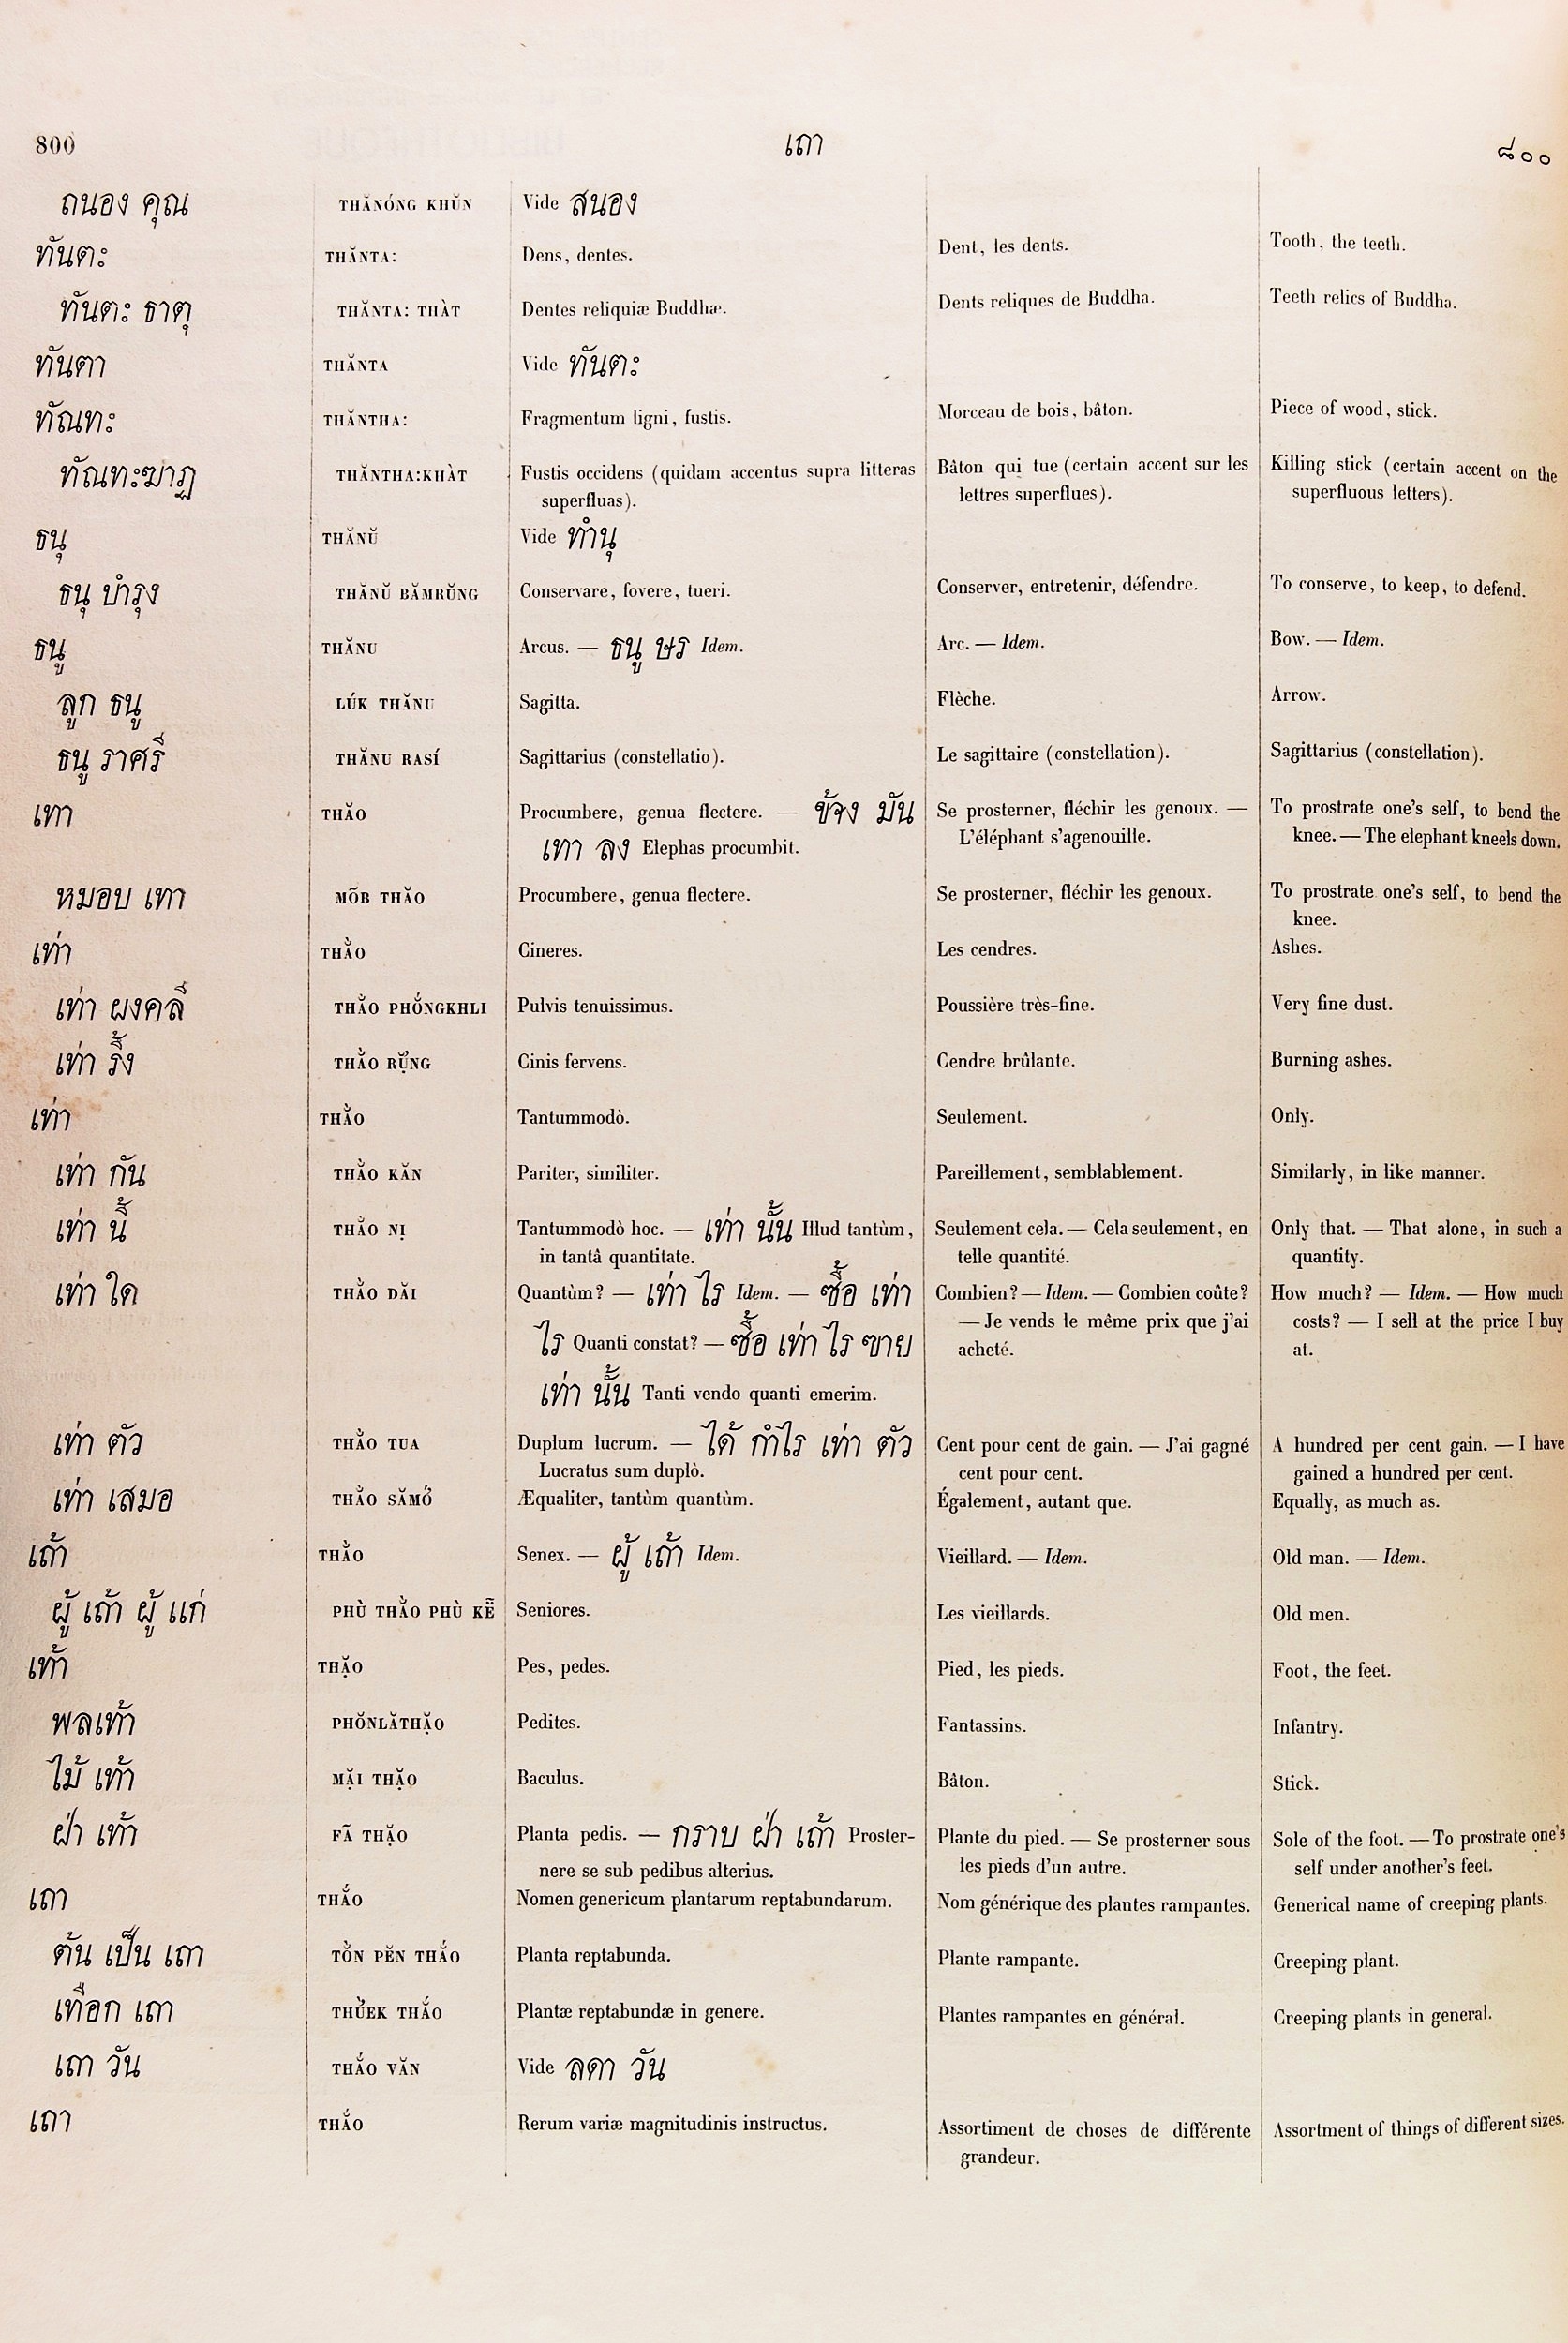 800 เถา ๘๐๐
ถนอง คุณ THĂNÓNG KHŬN Vide สนอง
ทันตะ THĂNTA: Dens, dentes. Dent, les dents. Tooth, the teeth.
ทันตะ ธาตุ THĂNTA: THÀT Dentes reliquiæ Buddhæ. Dents reliques de Buddha. Teeth relics of Buddha.
ทันตา THĂNTA Vide ทันตะ
ทัณทะ THĂNTHA: Fragmentum ligni, fustis. Morceau de bois, bâton. Piece of wood, stick.
ทัณทะฆาฏ THĂNTHA:KHÀT Fustis occidens (quidam accentus supra litteras Bâton qui tue (certain accent sur les Killing stick (certain accent on the
superfluas). lettres superflues). superfluous letters).
ธนุ THĂNŬ Vide ทำนุ
ธนุ บำรุง THĂNŬ BĂMRŬNG Conservare, fovere, tueri. Conserver, entretenir, défendre. To conserve, to keep, to defend.
ธนู THĂNU Arcus. — ธนู ษร Idem. Arc. — Idem. Bow. — Idem.
ลูก ธนู LÚK THĂNU Sagitta. Flèche. Arrow.
ธนู ราศรี THĂNU RASÍ Sagittarius (constellatio). Le sagittaire (constellation). Sagittarius (constellation).
เทา THĂO Procumbere, genua flectere. — ช้าง มัน Se prosterner, fléchir les genoux. — To prostrate one's self, to bend the
เทา ลง Elephas procumbit. L'éléphant s'agenouille. knee. — The elephant kneels down.
หมอบ เทา MÕB THĂO Procumbere, genua flectere. Se prosterner, fléchir les genoux. To prostrate one's self, to bend the
knee.
เท่า THẰO Cineres. Les cendres. Ashes.
เท่า ผงคลี THẰO PHỐNGKHLI Pulvis tenuissimus. Poussière très-fine. Very fine dust.
เท่า รึ้ง THẰO RŲ̆NG Cinis fervens. Cendre brûlante. Burning ashes.
เท่า THẰO Tantummodò. Seulement. Only.
เท่า กัน THẰO KĂN Pariter, similiter. Pareillement, semblablement. Similarly, in like manner.
เท่า นี้ THẰO NỊ Tantummodò hoc. — เท่า นั้น Illud tantùm, Seulement cela. — Cela seulement, en Only that. — That alone, in such a
in tantâ quantitate. telle quantité. quantity.
เท่า ใด THẰO DĂI Quantùm? — เท่า ไร Idem. — ซื้อ เท่า Combien? — Idem. — Combien coûte? How much? — Idem. — How much
ไร Quanti constat? — ซื้อ เท่า ไร ฃาย — Je vends le même prix que j'ai costs? — I sell at the price I buy
acheté. at.
เท่า นั้น Tanti vendo quanti emerim.
เท่า ตัว THẰO TUA Duplum lucrum. — ได้ กำไร เท่า ตัว Cent pour cent de gain. — J'ai gagné A hundred per cent gain. — I have
Lucratus sum duplò. cent pour cent. gained a hundred per cent.
เท่า เสมอ THẰO SĂMỞ Æqualiter, tantùm quantùm. Également, autant que. Equally, as much as.
เถ้า THẰO Senex. — ผู้ เถ้า Idem. Vieillard. — Idem. Old man. — Idem.
ผู้ เถ้า ผู้ แก่ PHÙ THẰO PHÙ KẼ Seniores. Les vieillards. Old men.
เท้า THẶO Pes, pedes. Pied, les pieds. Foot, the feet.
พลเท้า PHŎNLĂTHẶO Pedites. Fantassins. Infantry.
ไม้ เท้า MẶI THẶO Baculus. Bâton. Stick.
ฝ่า เท้า FÃ THẶO Planta pedis. — กราบ ฝ่า เถ้า Proster- Plante du pied. — Se prosterner sous Sole of the foot. — To prostrate one's
nere se sub pedibus alterius. les pieds d'un autre. self under another's feet.
เถา THẮO Nomen genericum plantarum reptabundarum. Nom générique des plantes rampantes. Generical name of creeping plants.
ต้น เป็น เถา TỒN PĔN THẮO Planta reptabunda. Plante rampante. Creeping plant.
เทือก เถา THŬEK THẮO Plantæ reptabundæ in genere. Plantes rampantes en général. Creeping plants in general.
เถา วัน THẮO VĂN Vide ลดา วัน
เถา THẮO Rerum variæ magnitudinis instructus. Assortiment de choses de différente Assortment of things of different sizes.
grandeur.